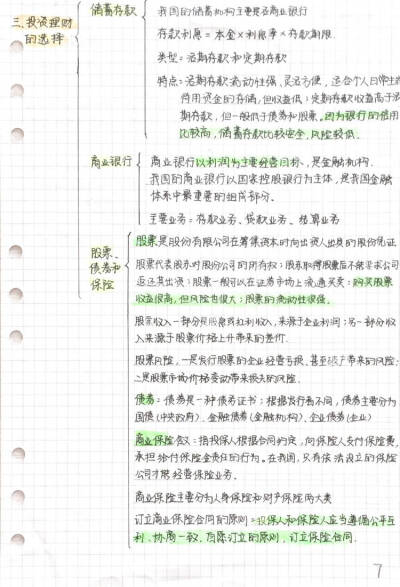 三、投资理财的选择
储蓄存款
我国的储蓄机构主要是各商业银行
存款利息=本金×利息率×存款期限
类型:活期存款和定期存款
特点:活期存款流动性强、灵活方便,适合个人日常生活
待用资金的存储,但收益低;定期存款收益高于活
期存款,但一般低于债券和股票。因为银行的信用
比较高,储蓄存款比较安全、风险较低.
商业银行
商业银行以利润为主要经营目标,是金融机构.
我国的商业银行以国家控股银行为主体,是我国金融
体系中最重要的组成部分.
主要业务:存款业务、贷款业务、结算业务
股票、债券和保险
股票是股份有限公司在筹集资本时向出资人出具的股份凭证
股票代表股东对股份公司的所有权;股东取得股票后不能要求公司
返还其出资;股票一般可以在证券市场上流通买卖;购买股票
收益很高,但风险也很大;股票的流动性很强。
股票收入一部分是股息或红利收入,来源于企业利润;另一部分收
入来源于股票价格上升带来的差价.
股票风险,一是发行股票的企业经营亏损、甚至破产带来的风险;
二是股票市场价格变动带来损失的风险.
债券:债券是一种债务证书;根据发行者不同,债券主要分为
国债(中央政府)、金融债券(金融机构)、企业债券(企业)
商业保险含义:指投保人根据合同约定,向保险人支付保险费,
承担给付保险金责任的行为。在我国,只有依法设立的保险
公司才能经营保险业务.
商业保险主要分为人身保险和财产保险两大类
订立商业保险合同的原则:投保人和保险人应当遵循公平互
利、协商一致、自愿订立的原则,订立保险合同.
7